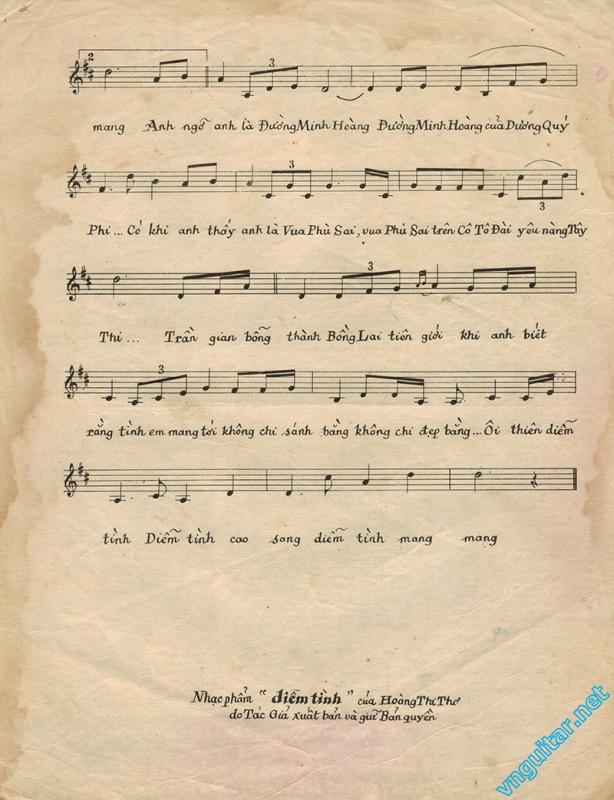 2
3
mang Anh ngỡ anh là Đường Minh Hoàng Đường Minh Hoàng của Dương Quý
3
3
Phi... Có khi anh thấy anh là Vua Phù Sai, vua Phù Sai trên Cô Tô Đài yêu nàng Tây
3
Thi... Trần gian bỗng thành Bồng Lai tiên giới khi anh biết
3
rằng tình em mang tới không chi sánh bằng không chi đẹp bằng... Ôi thiên diễm
tình Diễm tình cao sang diễm tình mang mang
Nhạc phẩm "diễm tình" của Hoàng Thi Thơ
do Tác Giả xuất bản và giữ Bản quyền
vnguitar.net